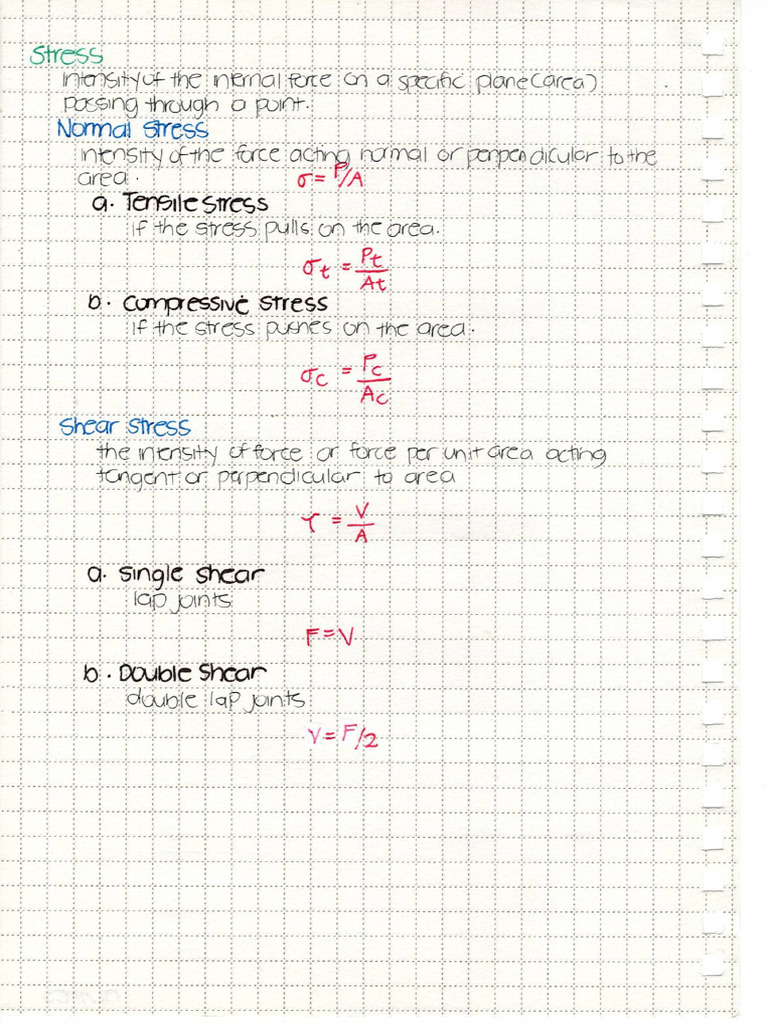 Stress
intensity of the internal force on a specific plane (area)
passing through a point.
Normal Stress
intensity of the force acting normal or perpendicular to the
area.
σ = P/A
a. Tensile Stress
if the stress pulls on the area.
σt = Pt/At
b. Compressive Stress
if the stress pushes on the area.
σc = Pc/Ac
Shear Stress
the intensity of force or force per unit area acting
tangent or perpendicular to area
τ = V/A
a. Single Shear
lap joints
F = V
b. Double Shear
double lap joints
V = F/2